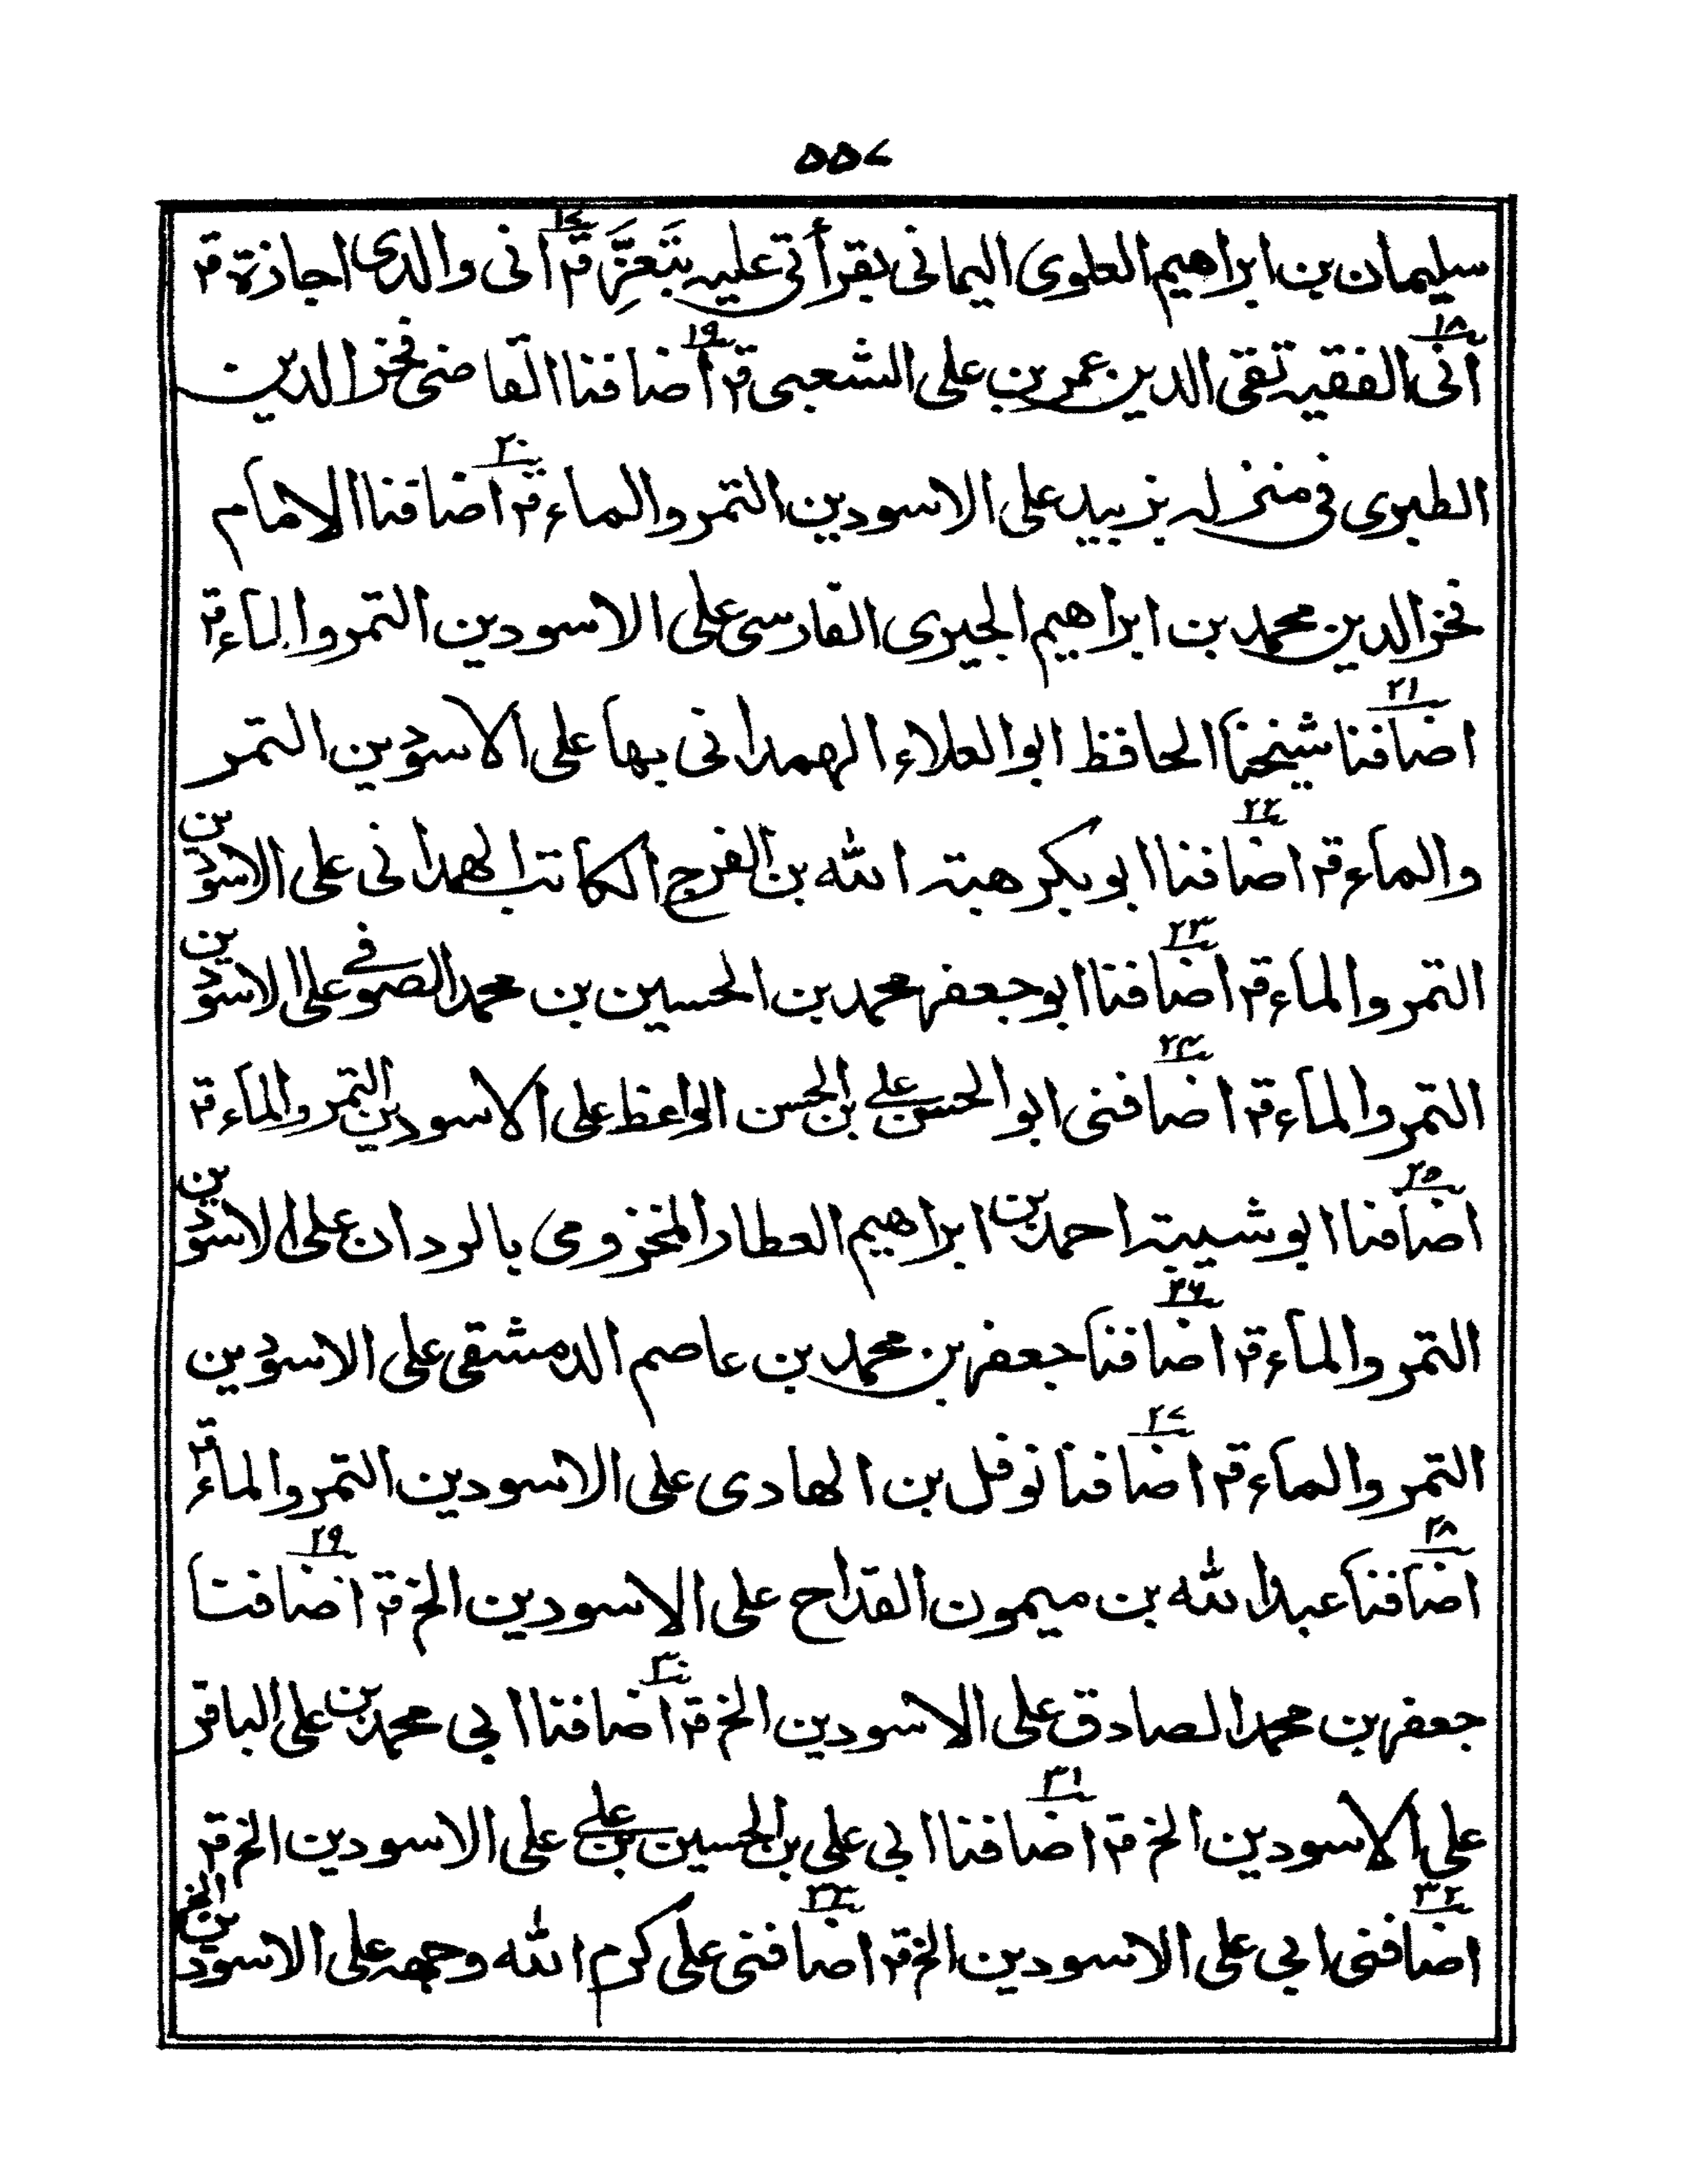 ۵۵۷
سليمان بن ابراهيم العلوى اليمانى بقرأتى عليه بتَعِزَّ قَ ١٧ انى والدى اجازة ق
١٨ انى الفقيه تقى الدين عمر بن على الشعبى ق ١٩ اضافنا القاضى فخر الدين
الطبرى فى منزله بزبيد على الاسودين التمر والماء ق ٢٠ اضافنا الامام
فخر الدين محمد بن ابراهيم الجيرى الفارسى على الاسودين التمر والماء ق
٢١ اضافنا شيخنا الحافظ ابو العلاء الهمدانى بها على الاسودين التمر
والماء ق ٢٢ اضافنا ابوبكر هبته الله بن الفرج الكاتب الهمدانى على الاسودين
التمر والماء ق ٢٣ اضافنا ابوجعفر محمد بن الحسين بن محمد الصوفى على الاسودين
التمر والماء ق ٢٤ اضافنى ابو الحسن على بن الحسن الواعظ على الاسودين التمر والماء ق
٢٥ اضافنا ابو شيبته احمد بن ابراهيم العطار المخزومى بالردان على الاسودين
التمر والماء ق ٢٦ اضافنا جعفر بن محمد بن عاصم الدمشقى على الاسودين
التمر والماء ق ٢٧ اضافنا نوفل بن الهادى على الاسودين التمر والماء ق
٢٨ اضافنا عبد الله بن ميمون القداح على الاسودين الخ ق ٢٩ اضافنا
جعفر بن محمد الصادق على الاسودين الخ ق ٣٠ اضافنا ابى محمد بن على الباقر
على الاسودين الخ ق ٣١ اضافنا ابى على بن الحسين بن على على الاسودين الخ ق
٣٢ اضافنى ابى على الاسودين الخ ق ٣٣ اضافنى على كرم الله وجهه على الاسودين الخ